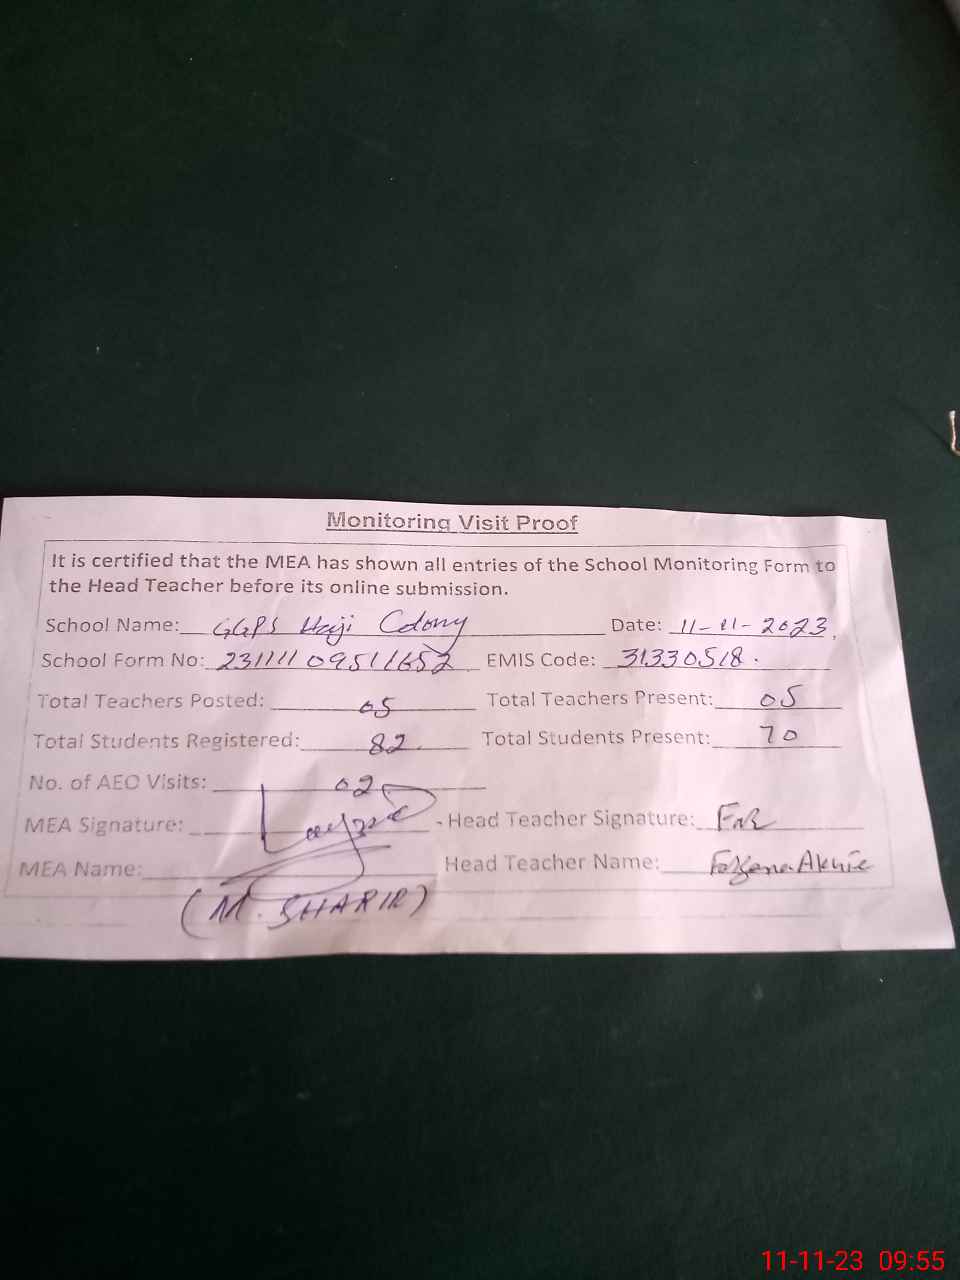 Monitoring Visit Proof
It is certified that the MEA has shown all entries of the School Monitoring Form to
the Head Teacher before its online submission.
School Name: GGPS Haji Colony Date: 11-11-2023
School Form No: 23111109511652 EMIS Code: 31330518
Total Teachers Posted: 05 Total Teachers Present: 05
Total Students Registered: 82 Total Students Present: 70
No. of AEO Visits: 02
MEA Signature: Head Teacher Signature:
MEA Name: Head Teacher Name:
(M. SHABIR)
11-11-23 09:55